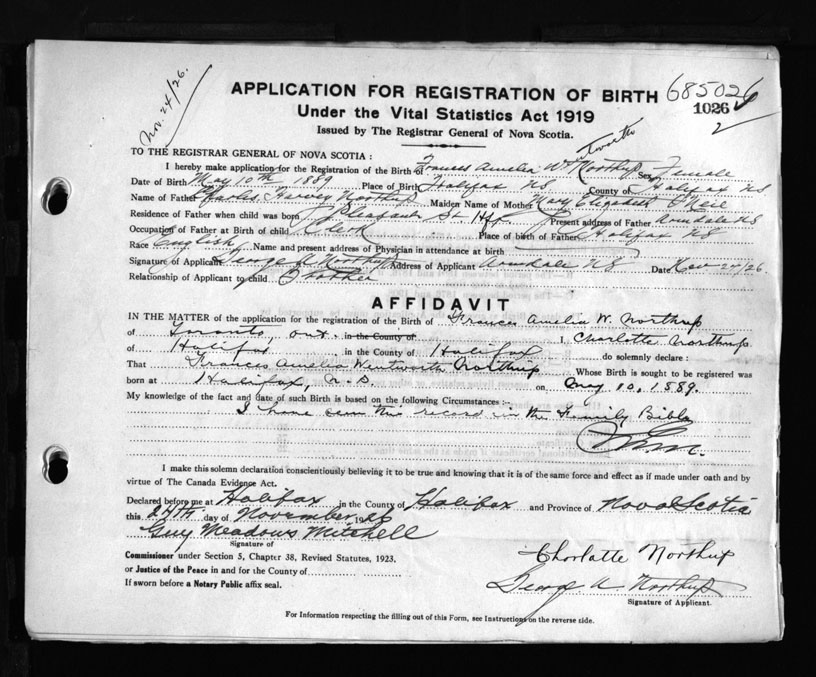 Nov. 24/26.
APPLICATION FOR REGISTRATION OF BIRTH 685026
Under the Vital Statistics Act 1919 1026
Issued by The Registrar General of Nova Scotia. 2
TO THE REGISTRAR GENERAL OF NOVA SCOTIA :
I hereby make application for the Registration of the Birth of Frances Amelia W. Northup Sex Female
Date of Birth May 10th 1889 Place of Birth Halifax NS County of Halifax NS
Name of Father Charles Harvey Northup Maiden Name of Mother Mary Elizabeth
Residence of Father when child was born Pleasant St Hfx Present address of Father Armdale NS
Occupation of Father at Birth of child Clerk Place of Birth of Father Halifax NS
Race English Name and present address of Physician in attendance at birth
Signature of Applicant George A Northup Address of Applicant Armdale NS Date Nov 24/26
Relationship of Applicant to child Brother
AFFIDAVIT
IN THE MATTER of the application for the registration of the Birth of Frances Amelia W. Northup
of Toronto, Ont. in the County of I, Charlotte Northup
of Halifax in the County of Halifax do solemnly declare :
That Frances Amelia Wentworth Northup Whose Birth is sought to be registered was
born at Halifax, N.S. on May 10, 1889.
My knowledge of the fact and date of such Birth is based on the following Circumstances :-
I have seen this record in the Family Bible
I make this solemn declaration conscientiously believing it to be true and knowing that it is of the same force and effect as if made under oath and by
virtue of The Canada Evidence Act.
Declared before me at Halifax in the County of Halifax and Province of Nova Scotia
this 24th day of November 1926
Guy Meadows Mitchell
Signature of
Commissioner under Section 5, Chapter 38, Revised Statutes, 1923.
or Justice of the Peace in and for the County of
If sworn before a Notary Public affix seal.
Charlotte Northup
George A. Northup
Signature of Applicant.
For Information respecting the filling out of this Form, see Instructions on the reverse side.